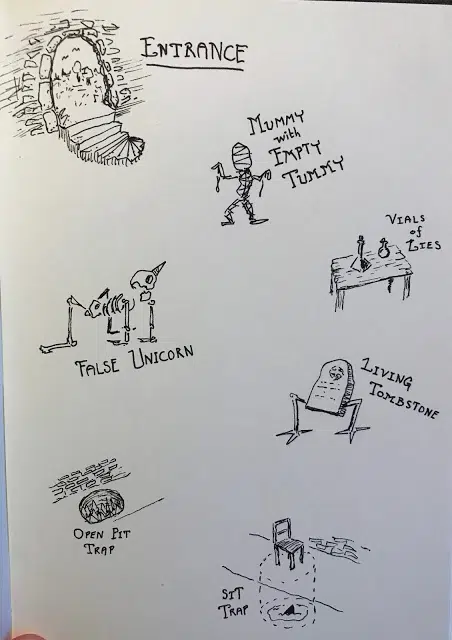 ENTRANCE
MUMMY
with
EMPTY
TUMMY
VIALS
of
LIES
FALSE UNICORN
LIVING
TOMBSTONE
OPEN PIT
TRAP
SIT
TRAP